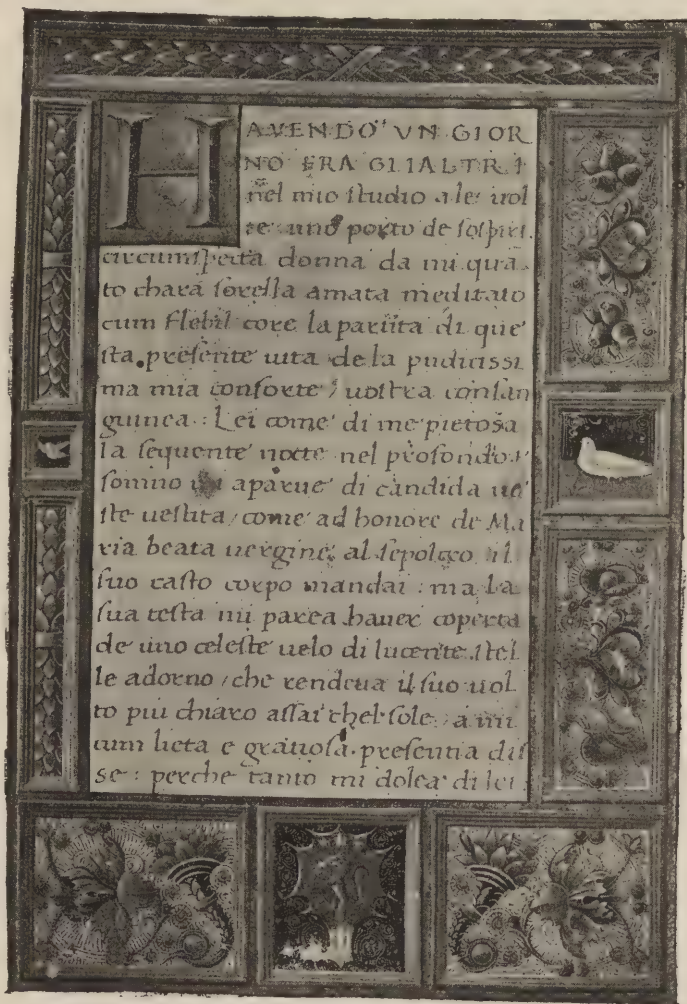 HAVENDO VN GIOR
NO FRA GLIALTRI
nel mio studio a le uol
te uno porto de sospiri.
circumspecta donna da mi qua
to chara sorella amata meditato
cum flebil core la partita di que
sta presente uita de la pudicissi
ma mia consorte / uostra consan
guinea : Lei come di me pietosa
la sequente nocte nel profondo
somno mi aparue di candida ue
ste uestita / come ad honore de Ma
ria beata uergine al sepolcro il
suo casto corpo mandai : ma la
sua testa mi parea hauer coperta
de uno celeste uelo di lucente stel
le adorno / che rendeua il suo uol
to piu chiaro assai chel sole. a mi
cum lieta e gratiosa presentia dis
se : perche tanto mi dolea di lei